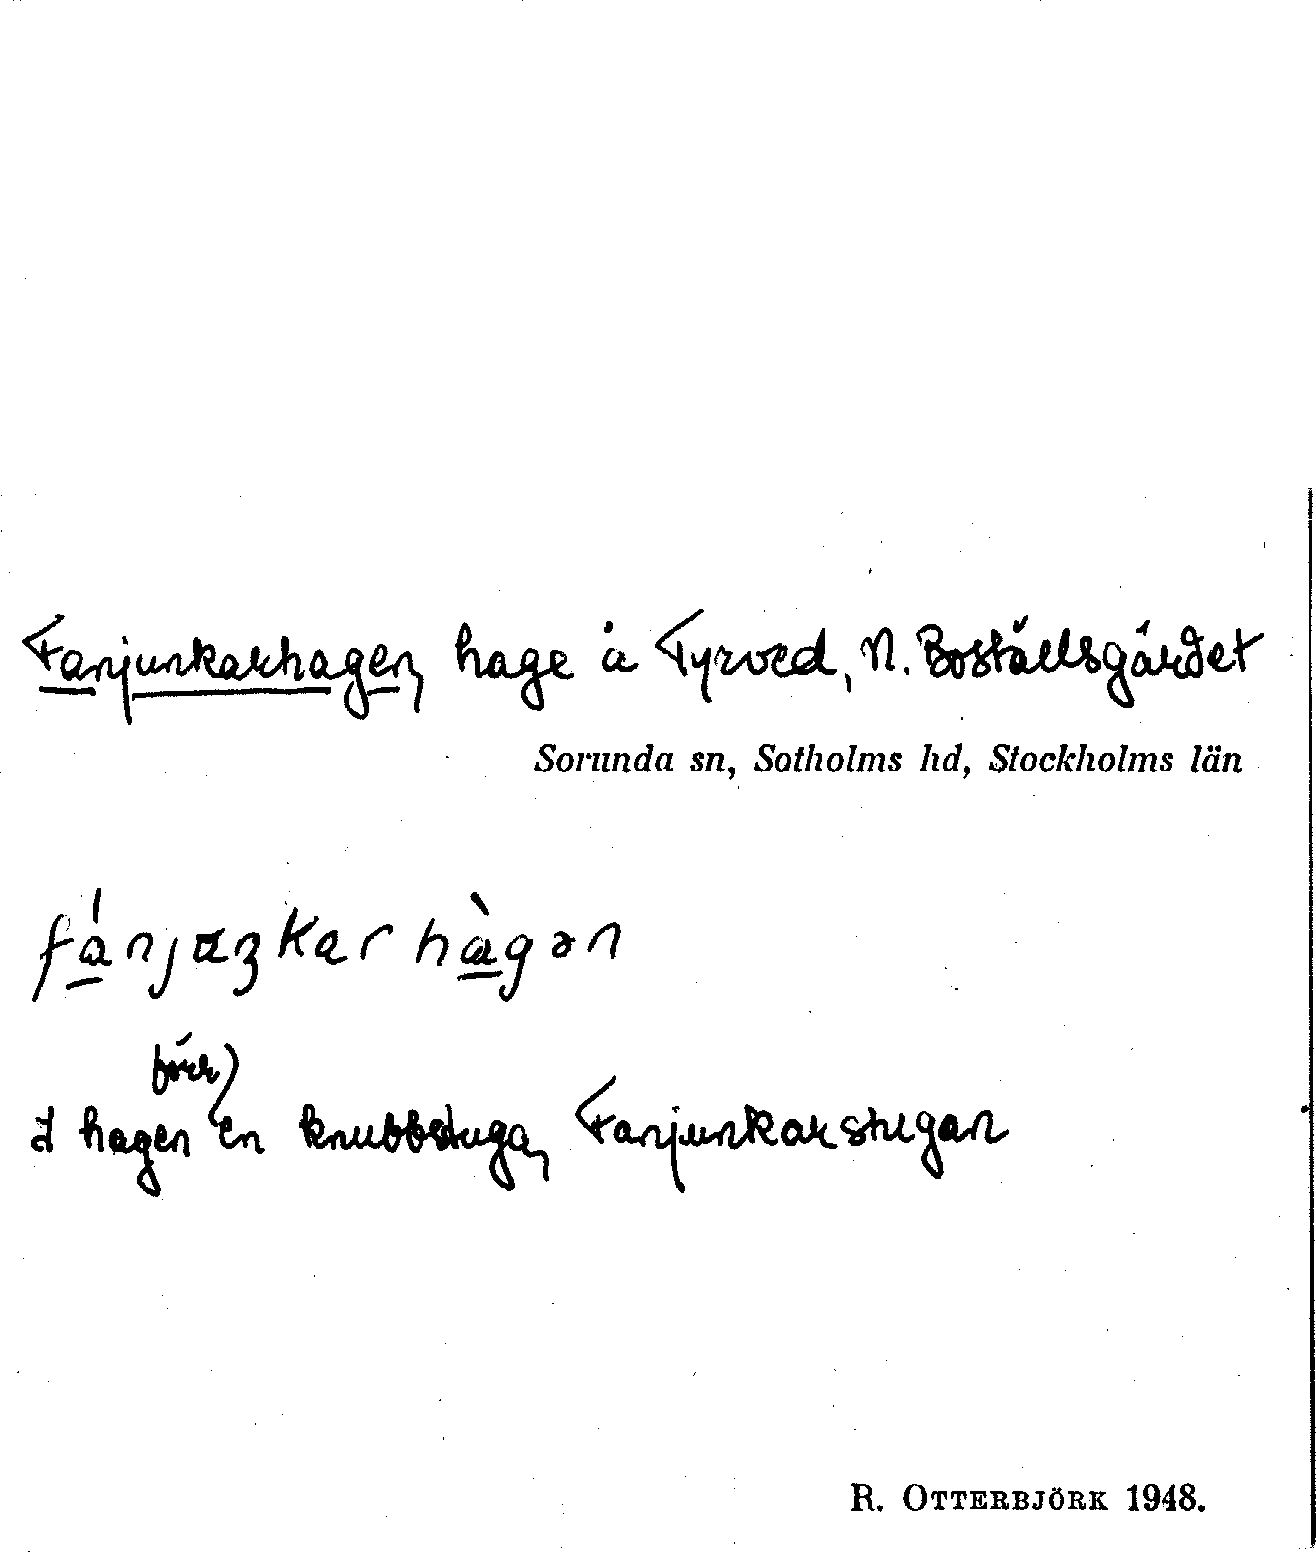 Fanjunkarhagen, hage å Fyrved, N. Boställsgärdet
Sorunda sn, Sotholms hd, Stockholms län
förr
I hagen en knubbstuga, Fanjunkarstugan
R. OTTERBJÖRK 1948.